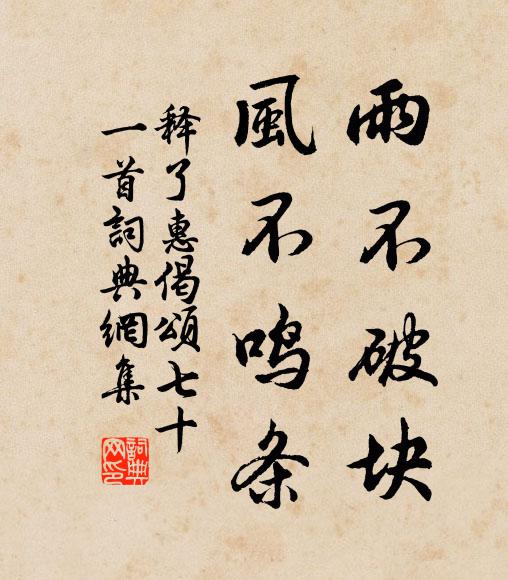 雨不破块
風不鸣条
释了惠偈頌七十
一首詞典網集
詞典
网印